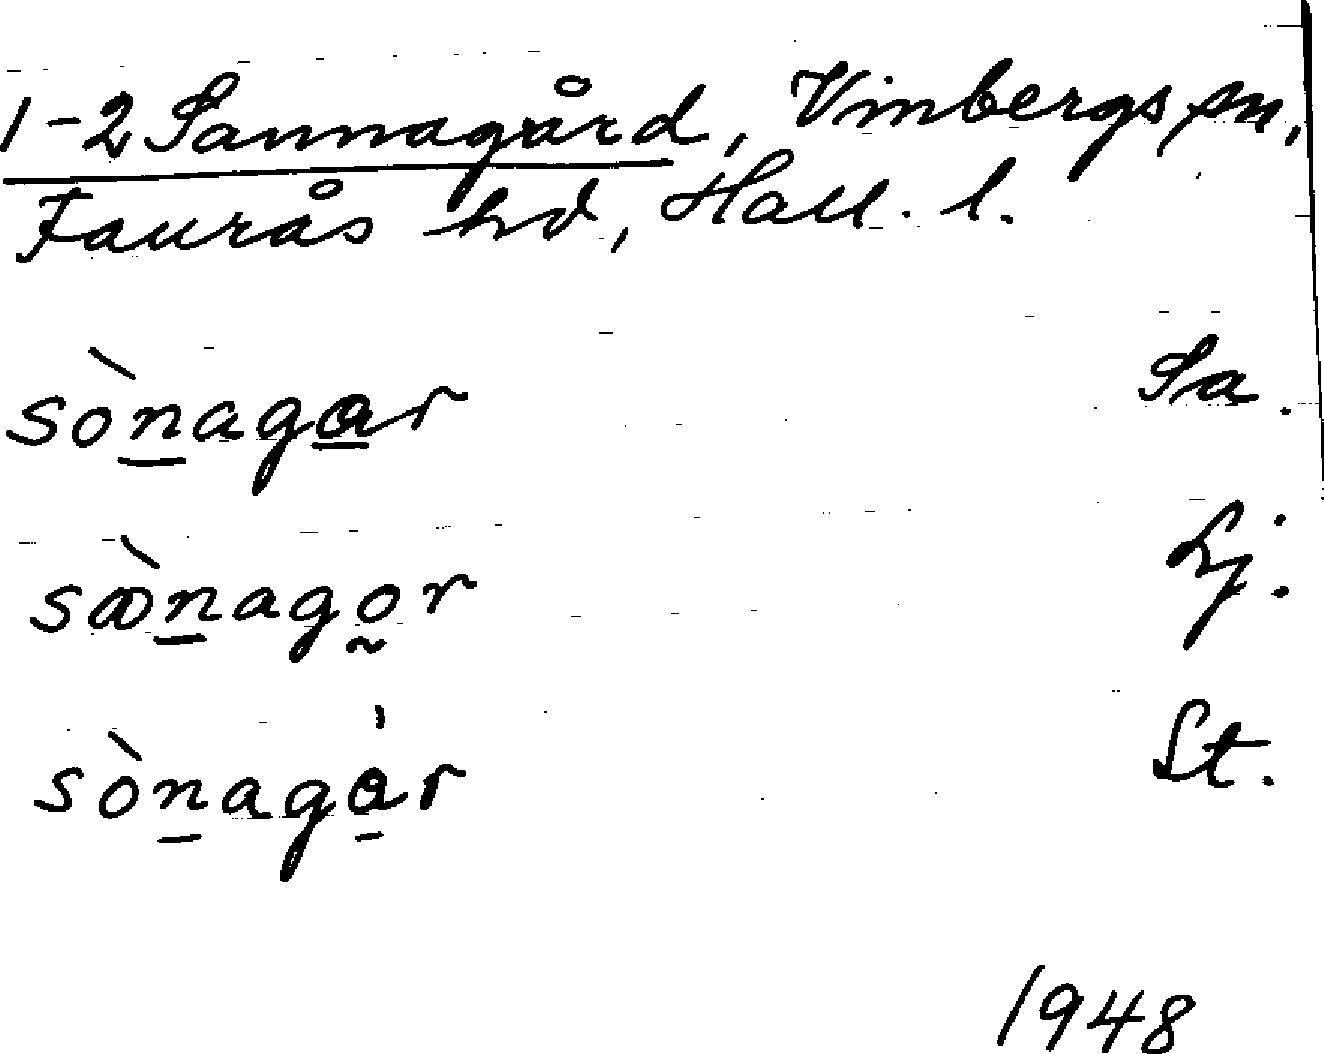 1-2 Sannagård, Vinbergs sn,
Faurås hd, Hall. l.
sònagar Sa.
sònagor Lj.
sònagàr St.
1948